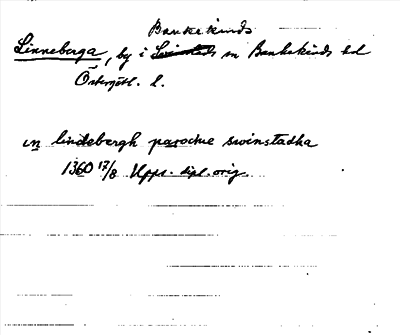 Bankekinds
Linneberga, by i Svinstads sn Bankekinds hd
Östergötl. l.
in lindebergh parochie swinstadha
1360 17/8 Upps. dipl. orig.